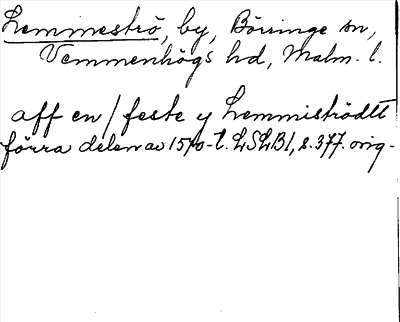 Lemmeströ, by, Börringe sn,
Vemmenhögs hd, Malm. l.
aff en / feste y Lemmiströdtt
förra delen av 1570-t. LSLB1, s. 377. orig-